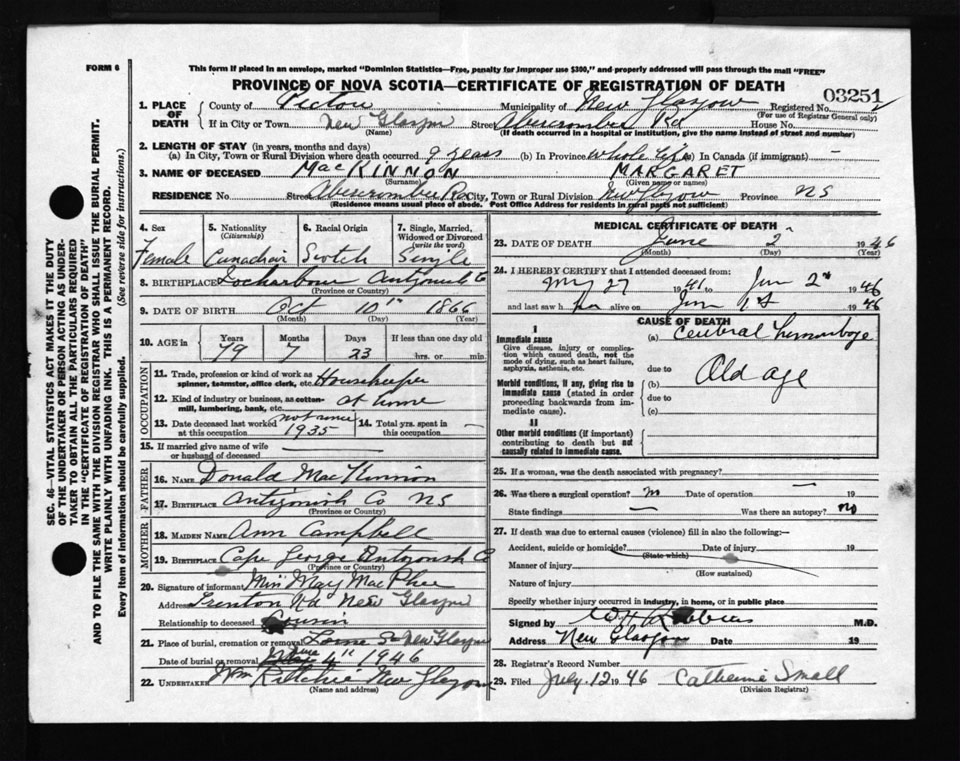 FORM 6
This form if placed in an envelope, marked "Dominion Statistics—Free, penalty for improper use $300," and properly addressed will pass through the mail "FREE"
PROVINCE OF NOVA SCOTIA—CERTIFICATE OF REGISTRATION OF DEATH
03251
1. PLACE OF DEATH County of Pictou Municipality of New Glasgow Registered No.
(For use of Registrar General only)
If in City or Town New Glasgow Street Abercrombie Rd House No.
(Name) (If death occurred in a hospital or institution, give the name instead of street and number)
2. LENGTH OF STAY (in years, months and days)
(a) In City, Town or Rural Division where death occurred 9 years (b) In Province whole life (c) In Canada (if immigrant) —
3. NAME OF DECEASED MacKINNON MARGARET
(Surname) (Given name or names)
RESIDENCE No. Street Abercrombie Rd City, Town or Rural Division New Glasgow Province NS
(Residence means usual place of abode. Post Office Address for residents in rural parts not sufficient)
4. Sex Female
5. Nationality (Citizenship) Canadian
6. Racial Origin Scotch
7. Single, Married, Widowed or Divorced (write the word) Single
8. BIRTHPLACE Antigonish Co
(Province or Country)
9. DATE OF BIRTH Oct 10th 1866
(Month) (Day) (Year)
10. AGE in Years Months Days If less than one day old
79 7 23 hrs. or min.
OCCUPATION
11. Trade, profession or kind of work as spinner, teamster, office clerk, etc. Housekeeper
12. Kind of industry or business, as cotton-mill, lumbering, bank, etc. at home
13. Date deceased last worked at this occupation not since 1935
14. Total yrs. spent in this occupation —
15. If married give name of wife or husband of deceased —
FATHER
16. NAME Donald MacKinnon
17. BIRTHPLACE Antigonish Co NS
(Province or Country)
MOTHER
18. MAIDEN NAME Ann Campbell
19. BIRTHPLACE Cape George Antigonish Co
(Province or Country)
20. Signature of informant Miss May MacPhee
Address Trenton Rd New Glasgow
Relationship to deceased Cousin
21. Place of burial, cremation or removal Lorne St New Glasgow
Date of burial or removal June 4th 1946
22. UNDERTAKER Wm Ritchie New Glasgow
(Name and address)
MEDICAL CERTIFICATE OF DEATH
23. DATE OF DEATH June 2 1946
(Month) (Day) (Year)
24. I HEREBY CERTIFY that I attended deceased from:
May 27 1941 to Jun 2nd 1946
and last saw her alive on Jun 1st 1946
CAUSE OF DEATH
I
Immediate cause
Give disease, injury or complication which caused death, not the mode of dying, such as heart failure, asphyxia, asthenia, etc.
(a) Cerebral hemorrhage
due to
Morbid conditions, if any, giving rise to immediate cause (stated in order proceeding backwards from immediate cause).
(b) Old age
due to
(c)
II
Other morbid conditions (if important) contributing to death but not causally related to immediate cause.
25. If a woman, was the death associated with pregnancy? —
26. Was there a surgical operation? no Date of operation — 19
State findings — Was there an autopsy? no
27. If death was due to external causes (violence) fill in also the following:—
Accident, suicide or homicide? Date of injury 19
(State which)
Manner of injury
(How sustained)
Nature of injury
Specify whether injury occurred in industry, in home, or in public place
Signed by M.D.
Address New Glasgow Date 19
28. Registrar's Record Number
29. Filed July. 12 1946 Catherine Small
(Division Registrar)
SEC. 46—VITAL STATISTICS ACT MAKES IT THE DUTY
OF THE UNDERTAKER OR PERSON ACTING AS UNDER-
TAKER TO OBTAIN ALL THE PARTICULARS REQUIRED
IN THE "CERTIFICATE OF REGISTRATION OF DEATH"
AND TO FILE THE SAME WITH THE DIVISION REGISTRAR WHO SHALL ISSUE THE BURIAL PERMIT.
WRITE PLAINLY WITH UNFADING INK. THIS IS A PERMANENT RECORD.
Every item of information should be carefully supplied. (See reverse side for instructions.)